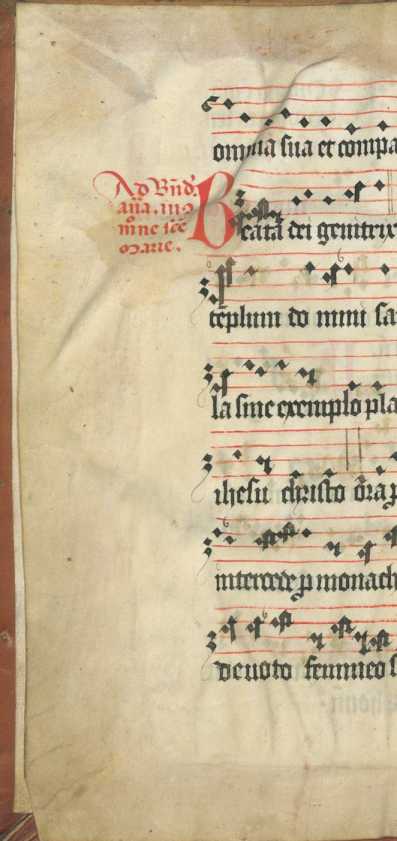 omnia sua et compa
Ad Bñd'
añã. in
mne scē
marie.
Beata dei genitrix
templum do mini sa
la sine exemplo pla
ihesu christo ora p
intercede p monach
deuoto femineo s